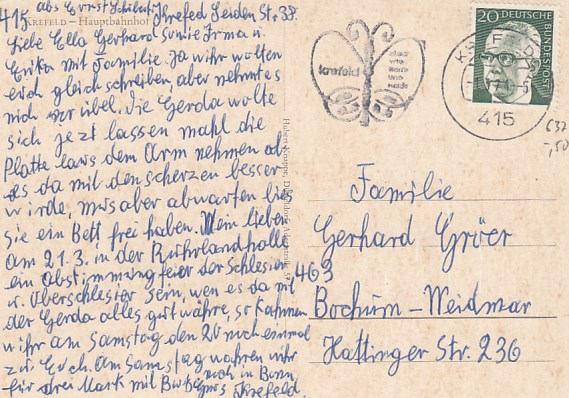 abs Ernst Schubert
415 Krefeld Seiden Str. 38.
KREFELD – Hauptbahnhof
Liebe Ella Gerhard Sowie Irma u.
Erika mit Familie. Ja wihr wolten
euch gleich schreiben, aber nehmt es
mich nr übel. die Gerda wolte
sich jezt lassen mahl die
Platte laws dem Arm nehmen ob
es da mit den scherzen besser
wirde, mus aber abwarten bies
sie ein Bett frei haben. Mein lieben
am 21.3. in der Ruhrlandhalle
ein Abstimmung feier der Schlesier
u. Überschlesier sein, wen es da mit
der Gerda alles gut währe, so kahmen
wihr am Samstag den 20 noch einmal
zu Euch. Am Samstag wahren wihr
für drei Mark mit noch in Bonn
Krefeld.
krefeld
KREFELD
415
20
DEUTSCHE BUNDESPOST
632
-,50
Familie
Gerhard Gröer
463
Bochum-Weidmar
Hattinger Str. 236